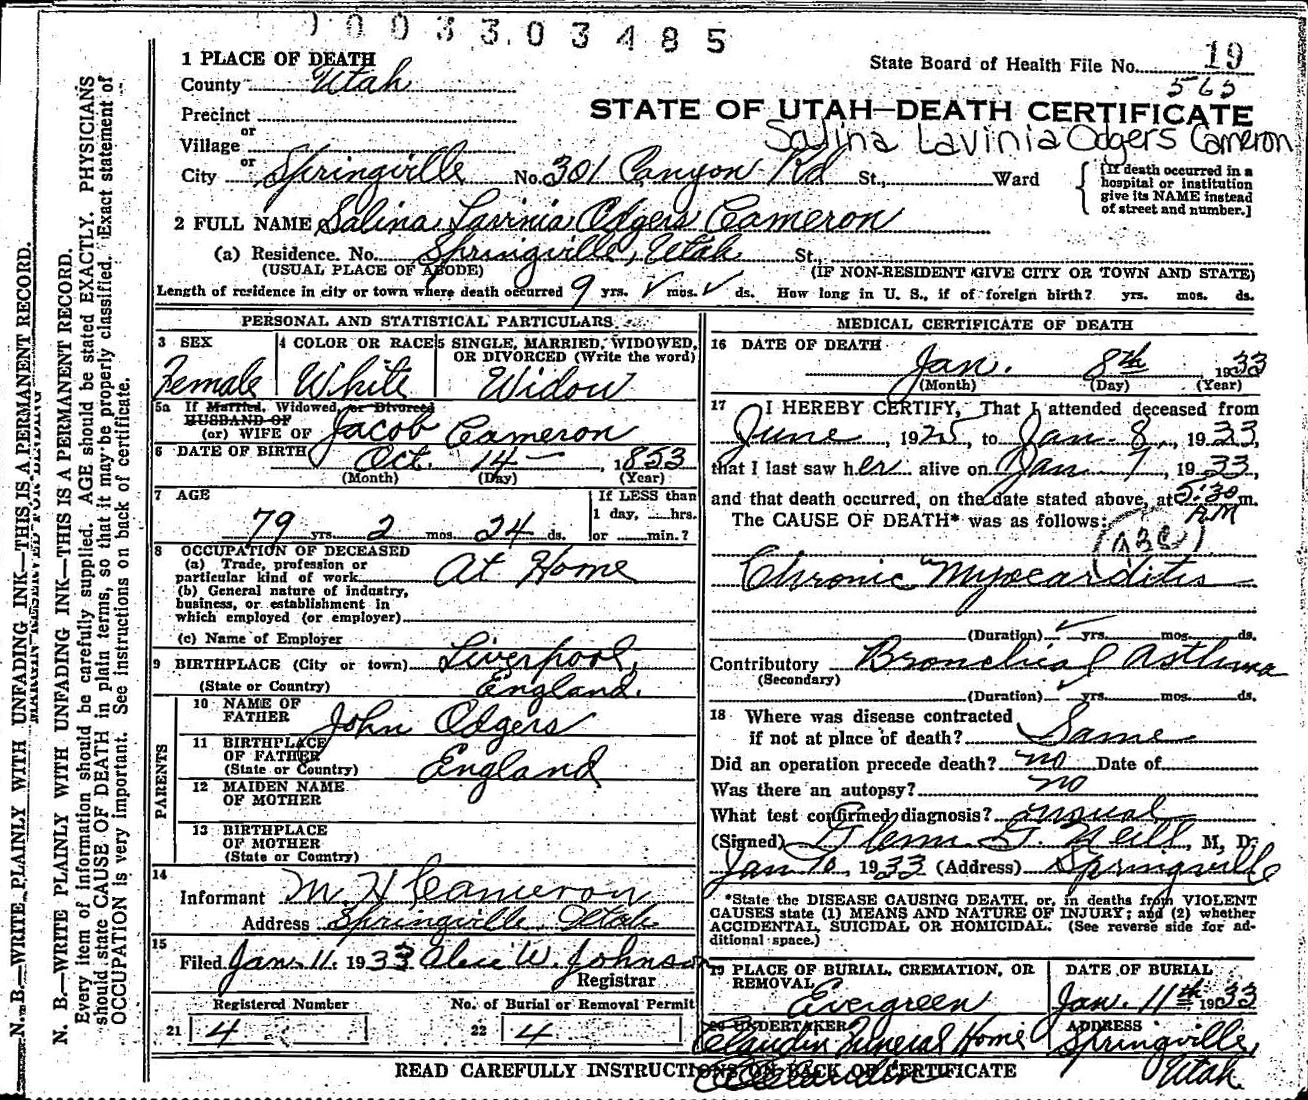 0003303485
1 PLACE OF DEATH
State Board of Health File No. 19
County Utah
565
STATE OF UTAH—DEATH CERTIFICATE
Precinct
or
Salina Lavinia Odgers Cameron
Village
or
City Springville No. 301 Canyon Rd St., Ward
[If death occurred in a hospital or institution give its NAME instead of street and number.]
2 FULL NAME Salina Lavinia Odgers Cameron
(a) Residence. No. Springville, Utah St.,
(USUAL PLACE OF ABODE) (IF NON-RESIDENT GIVE CITY OR TOWN AND STATE)
Length of residence in city or town where death occurred 9 yrs. mos. ds. How long in U. S., if of foreign birth? yrs. mos. ds.
PERSONAL AND STATISTICAL PARTICULARS
3 SEX 4 COLOR OR RACE 5 SINGLE, MARRIED, WIDOWED,
OR DIVORCED (Write the word)
Female White Widow
5a If Married, Widowed, or Divorced
HUSBAND OF
(or) WIFE OF Jacob Cameron
6 DATE OF BIRTH Oct. 14 — , 1853
(Month) (Day) (Year)
7 AGE If LESS than
1 day, hrs.
79 yrs. 2 mos. 24 ds. or min.?
8 OCCUPATION OF DECEASED
(a) Trade, profession or
particular kind of work At Home
(b) General nature of industry,
business, or establishment in
which employed (or employer)
(c) Name of Employer
9 BIRTHPLACE (City or town) Liverpool,
(State or Country) England.
PARENTS
10 NAME OF
FATHER John Odgers
11 BIRTHPLACE
OF FATHER England
(State or Country)
12 MAIDEN NAME
OF MOTHER
13 BIRTHPLACE
OF MOTHER
(State or Country)
14
Informant M. H Cameron
Address Springville, Utah
15
Filed Jan. 11. 1933 Alice W. Johnson
Registrar
Registered Number No. of Burial or Removal Permit
21 4 22 4
MEDICAL CERTIFICATE OF DEATH
16 DATE OF DEATH
Jan. 8th , 1933
(Month) (Day) (Year)
17 I HEREBY CERTIFY, That I attended deceased from
June , 1925, to Jan. 8, 1933,
that I last saw her alive on Jan 7, 1933,
and that death occurred, on the date stated above, at 5:30 m.
A.M
The CAUSE OF DEATH* was as follows:
Chronic Myocarditis
(Duration) yrs. mos. ds.
Contributory Bronchial Asthma
(Secondary)
(Duration) yrs. mos. ds.
18 Where was disease contracted
if not at place of death? Same
Did an operation precede death? no Date of
Was there an autopsy? no
What test confirmed diagnosis?
(Signed) Glenn G. Neill, M, D.
Jan 10 1933 (Address) Springville
*State the DISEASE CAUSING DEATH, or, in deaths from VIOLENT
CAUSES state (1) MEANS AND NATURE OF INJURY; and (2) whether
ACCIDENTAL, SUICIDAL OR HOMICIDAL. (See reverse side for ad-
ditional space.)
19 PLACE OF BURIAL, CREMATION, OR
REMOVAL DATE OF BURIAL
Evergreen Jan. 11th 1933
20 UNDERTAKER ADDRESS
Claudin Funeral Home Springville,
Utah
READ CAREFULLY INSTRUCTIONS ON BACK OF CERTIFICATE
N. B.—WRITE PLAINLY WITH UNFADING INK—THIS IS A PERMANENT RECORD.
MARGIN RESERVED FOR BINDING
N. B.—WRITE PLAINLY WITH UNFADING INK—THIS IS A PERMANENT RECORD.
Every item of information should be carefully supplied. AGE should be stated EXACTLY. PHYSICIANS
should state CAUSE OF DEATH in plain terms, so that it may be properly classified. Exact statement of
OCCUPATION is very important. See instructions on back of certificate.